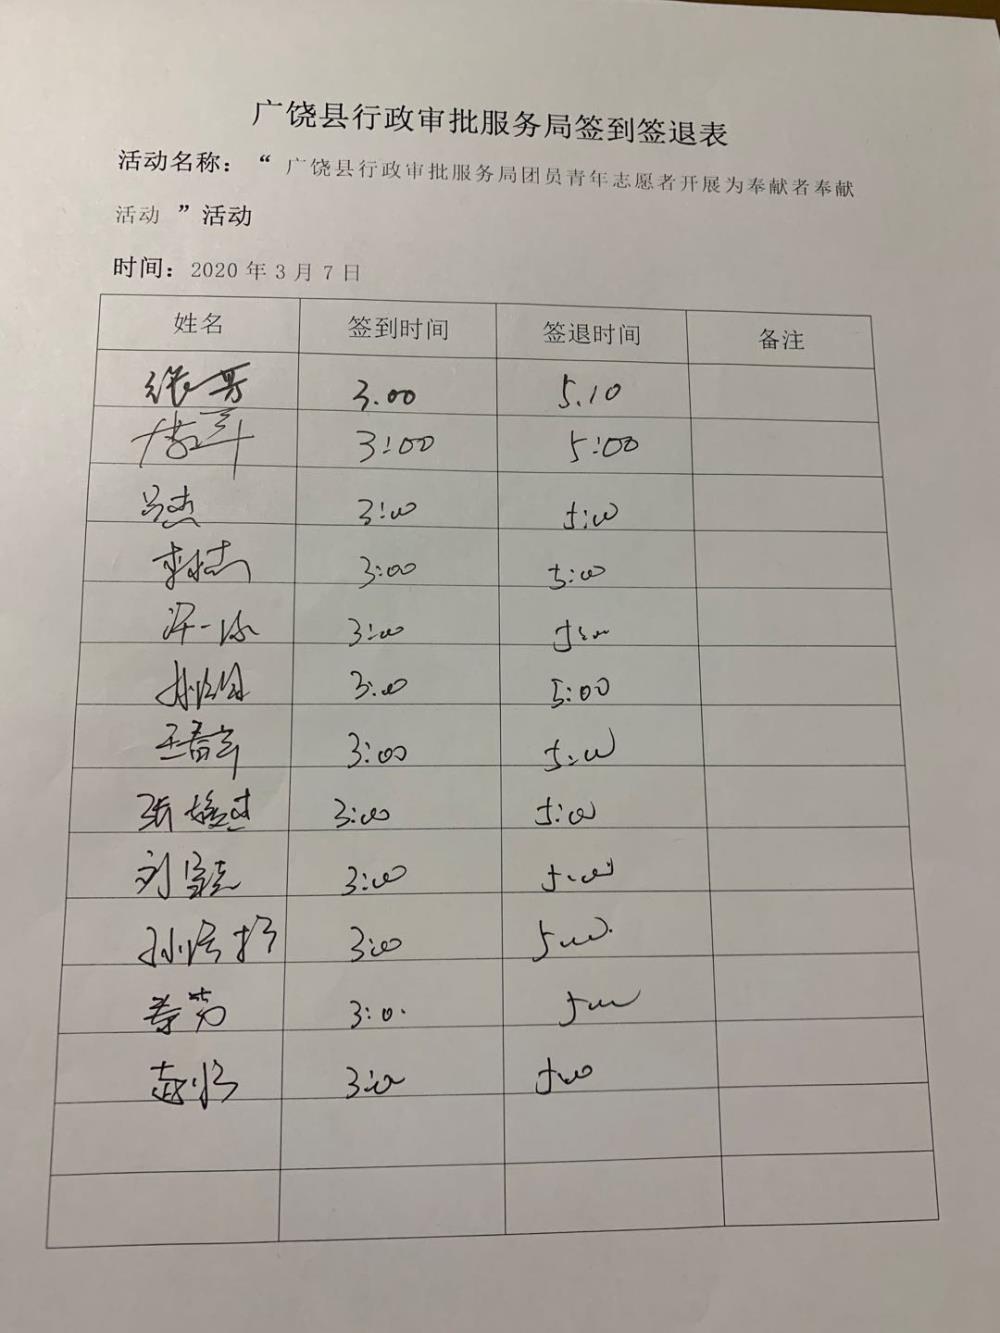 广饶县行政审批服务局签到签退表
活动名称：“ 广饶县行政审批服务局团员青年志愿者开展为奉献者奉献
活动 ”活动
时间：2020 年 3 月 7 日
姓名 签到时间 签退时间 备注
张芳 3.00 5.10
3:00 5:00
吕杰 3:00 5:00
李杰 3:00 5:00
3:00 5:00
3:00 5:00
王春宇 3:00 5:00
张 3:00 5:00
刘 3:00 5:00
孙 3:00 5:00
3:0. 5:00
赵 3:00 5:00